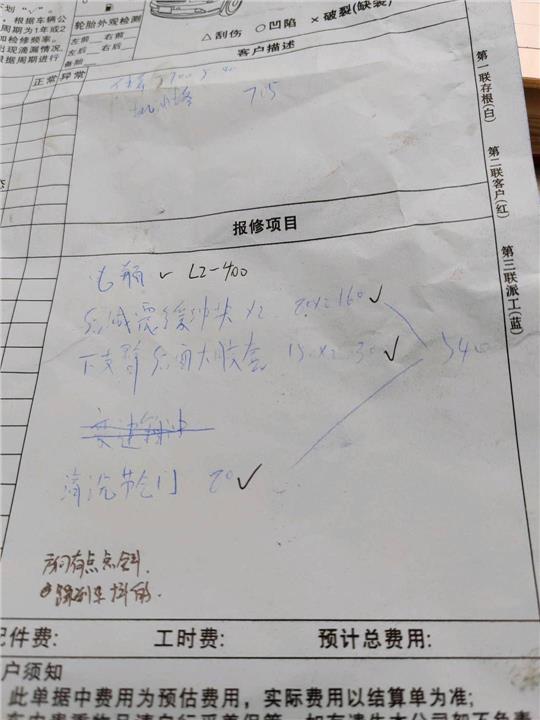 划"√"。
，根据车辆公
周期为1年或2
加检修频率。
出现滴漏情况，
根据周期进行
轮胎外观检测
左前 右前
左后 右后
备胎
△刮伤 ○凹陷 ×破裂(缺装)
客户描述
正常 异常
机 715
第一联存根(白)
第二联客户(红)
第三联派工(蓝)
报修项目
电瓶 L2-400
后减震缓冲块 x2 80x2 160 ✓
下支臂后面大胶套 15x2 30 ✓
540
变速箱油
清洗节气门 80 ✓
方向有点点斜.
刹车抖的.
配件费: 工时费: 预计总费用:
户须知
此单据中费用为预估费用，实际费用以结算单为准;